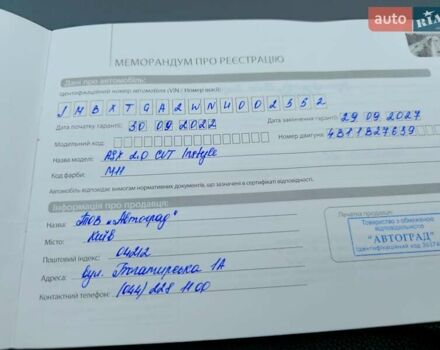 auto RIA
МЕМОРАНДУМ ПРО РЕЄСТРАЦІЮ
Дані про автомобіль:
Ідентифікаційний номер автомобіля (VIN) / Номер шасі:
JMBXTGA2WNU002552
Дата початку гарантії: 30 09 2022 Дата закінчення гарантії: 29 09 2027
Модельний код: Номер двигуна: 4B11BZ7639
Назва моделі: ASX 2.0 CVT Instyle
Код фарби:
Автомобіль відповідає вимогам нормативних документів, що зазначені в сертифікаті відповідності.
Інформація про продавця:
Печатка продавця:
Назва: ТОВ "Автоград"
Місто: Київ
Поштовий індекс: 04212
Адреса: вул. Богатирська 1А
Контактний телефон: (044) 228 11 00
Товариство з обмеженою
відповідальністю
"АВТОГРАД"
Ідентифікаційний код